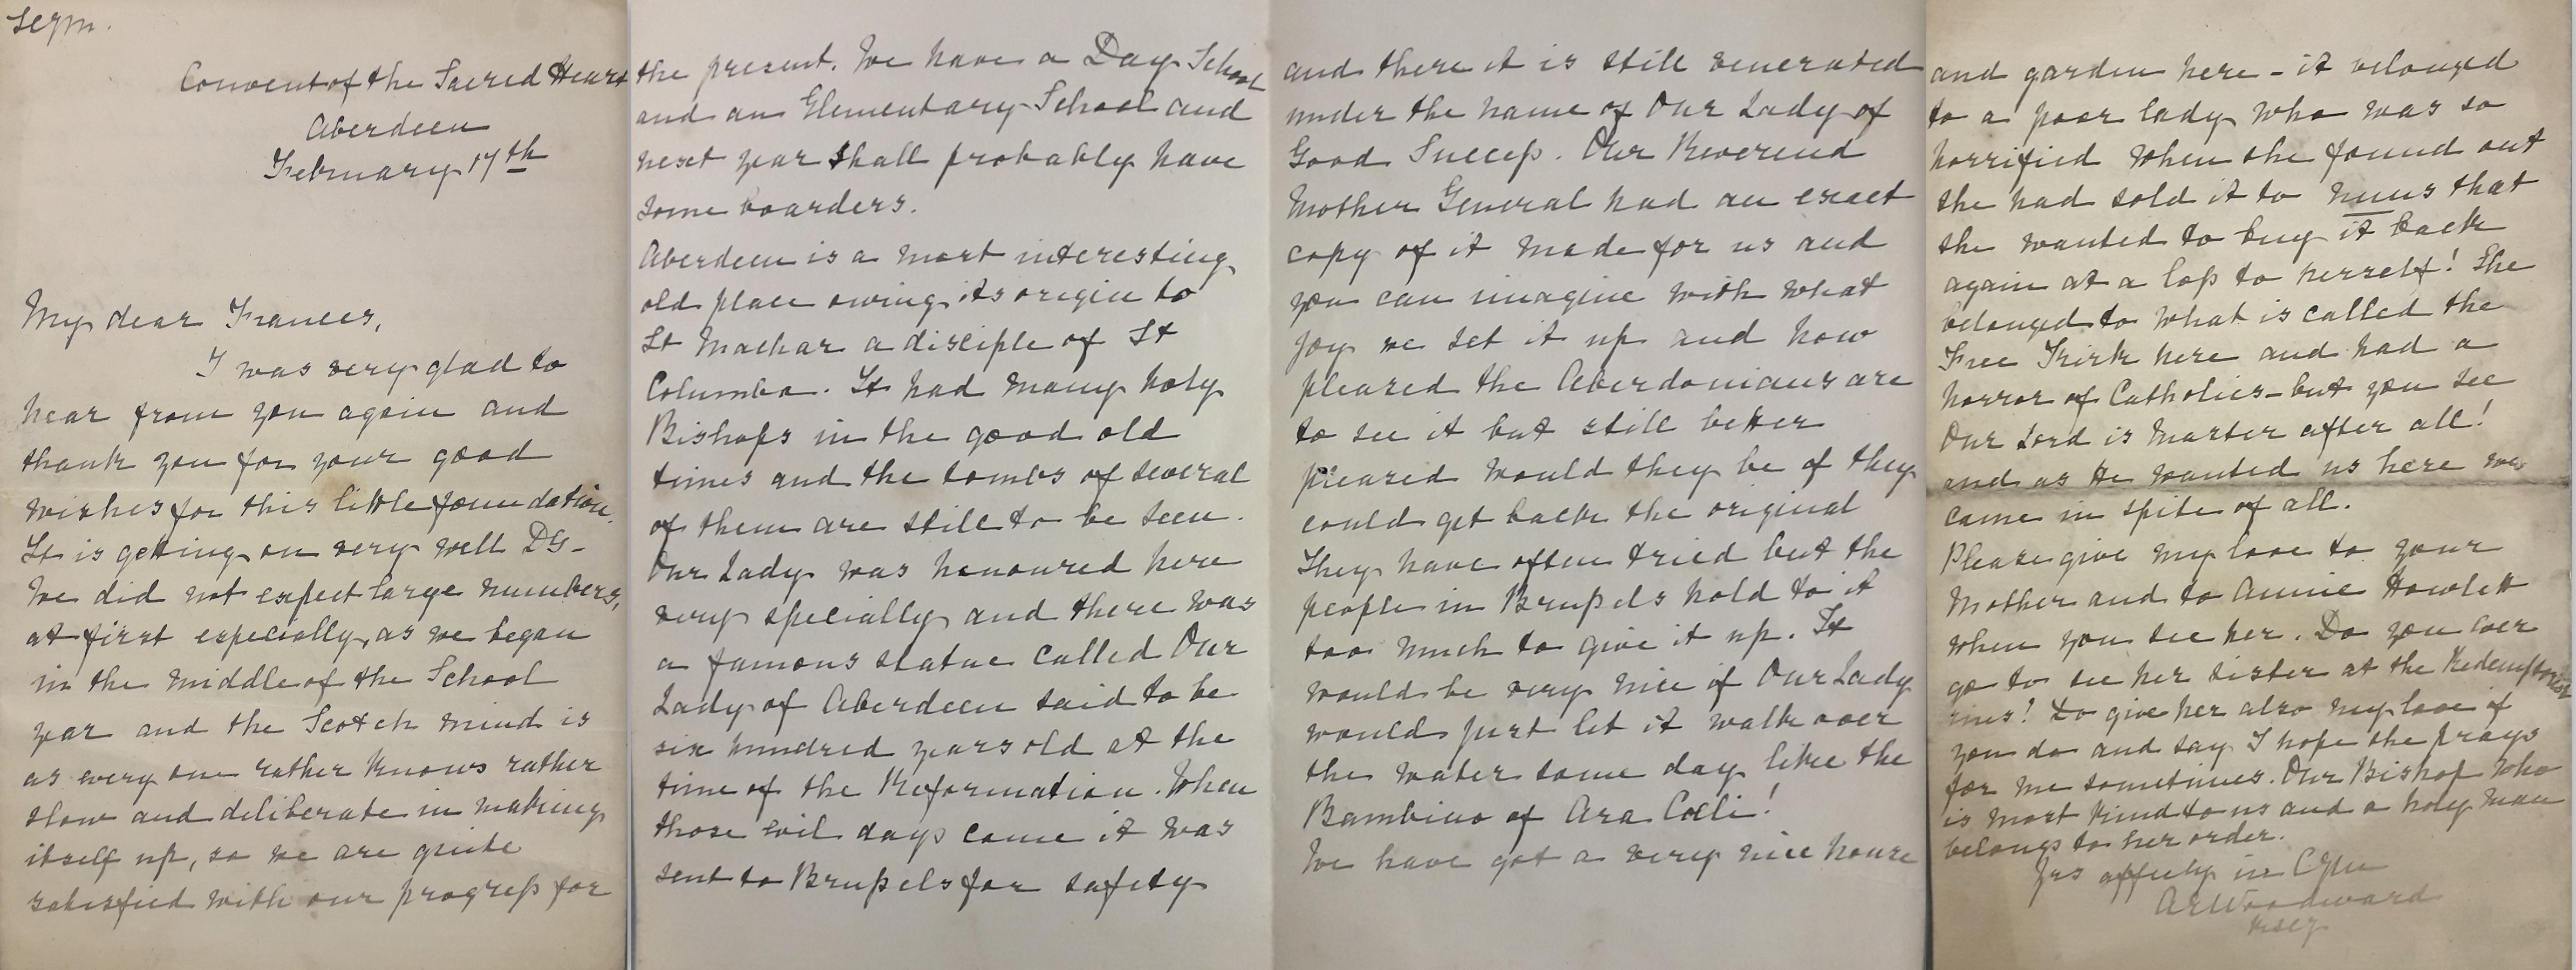 scJm.
Convent of the Sacred Heart
Aberdeen
February 17th
My dear Frances,
I was very glad to
hear from you again and
thank you for your good
wishes for this little foundation.
It is getting on very well DG-
We did not expect large numbers,
at first especially, as we began
in the middle of the School
year and the Scotch mind is
as every one rather knows rather
slow and deliberate in making
itself up, so we are quite
satisfied with our progress for
the present. We have a Day School
and an Elementary School and
next year shall probably have
some boarders.
Aberdeen is a most interesting
old place owing its origin to
St Machar a disciple of St
Columba. It had many holy
Bishops in the good old
times and the tombs of several
of them are still to be seen.
Our Lady was honoured here
very specially and there was
a famous statue called Our
Lady of Aberdeen said to be
six hundred years old at the
time of the Reformation. When
those evil days came it was
sent to Brussels for safety
and there it is still venerated
under the name of Our Lady of
Good Success. Our Reverend
Mother General had an exact
copy of it made for us and
you can imagine with what
joy we set it up and how
pleased the Aberdonians are
to see it but still better
pleased would they be if they
could get back the original
They have often tried but the
people in Brussels hold to it
too much to give it up. It
would be very nice if Our Lady
would just let it walk over
the water some day like the
Bambino of Ara Cœli!
We have got a very nice house
and garden here - it belonged
to a poor lady who was so
horrified when she found out
she had sold it to nuns that
she wanted to buy it back
again at a loss to herself! She
belonged to what is called the
Free Kirk here and had a
horror of Catholics - but you see
Our Lord is Master after all!
and as He wanted us here we
came in spite of all.
Please give my love to your
Mother and to Annie Howlett
when you see her. Do you ever
go to see her sister at the Redempto
rines? Do give her also my love if
you do and say I hope she prays
for me sometimes. Our Bishop who
is most kind to us and a holy man
belongs to her order.
Yrs affectly in CJM
AEWoodward
rscJ